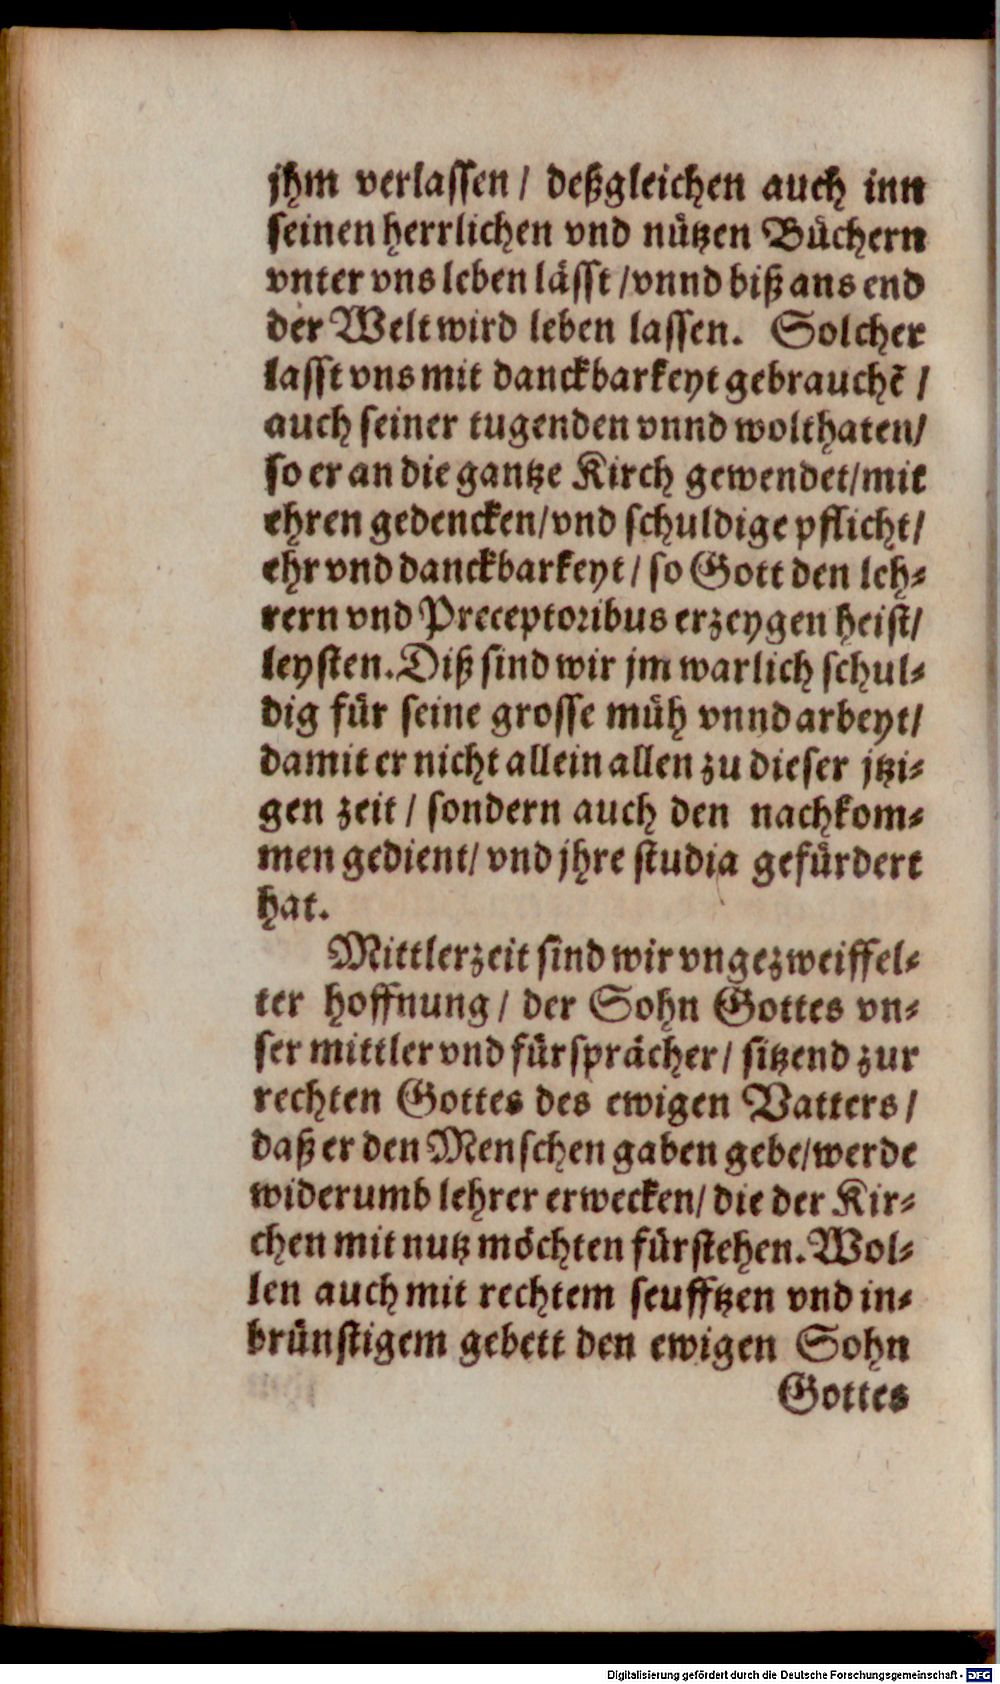 jhm verlassen / deßgleichen auch inn
seinen herrlichen vnd nützen Büchern
vnter vns leben lässt / vnnd biß ans end
der Welt wird leben lassen. Solcher
lasst vns mit danckbarkeyt gebrauchē /
auch seiner tugenden vnnd wolthaten/
so er an die gantze Kirch gewendet/mit
ehren gedencken/vnd schuldige pflicht/
ehr vnd danckbarkeyt / so Gott den leh-
rern vnd Preceptoribus erzeygen heist/
leysten. Diß sind wir jm warlich schul-
dig für seine grosse müh vnnd arbeyt/
damit er nicht allein allen zu dieser jtzi-
gen zeit / sondern auch den nachkom-
men gedient/ vnd jhre studia gefürdert
hat.
Mittlerzeit sind wir vngezweiffel-
ter hoffnung / der Sohn Gottes vn-
ser mittler vnd fürsprächer / sitzend zur
rechten Gottes des ewigen Vatters /
daß er den Menschen gaben gebe/werde
widerumb lehrer erwecken/ die der Kir-
chen mit nutz möchten fürstehen. Wol-
len auch mit rechtem seufftzen vnd in-
brünstigem gebett den ewigen Sohn
Gottes
Digitalisierung gefördert durch die Deutsche Forschungsgemeinschaft - DFG